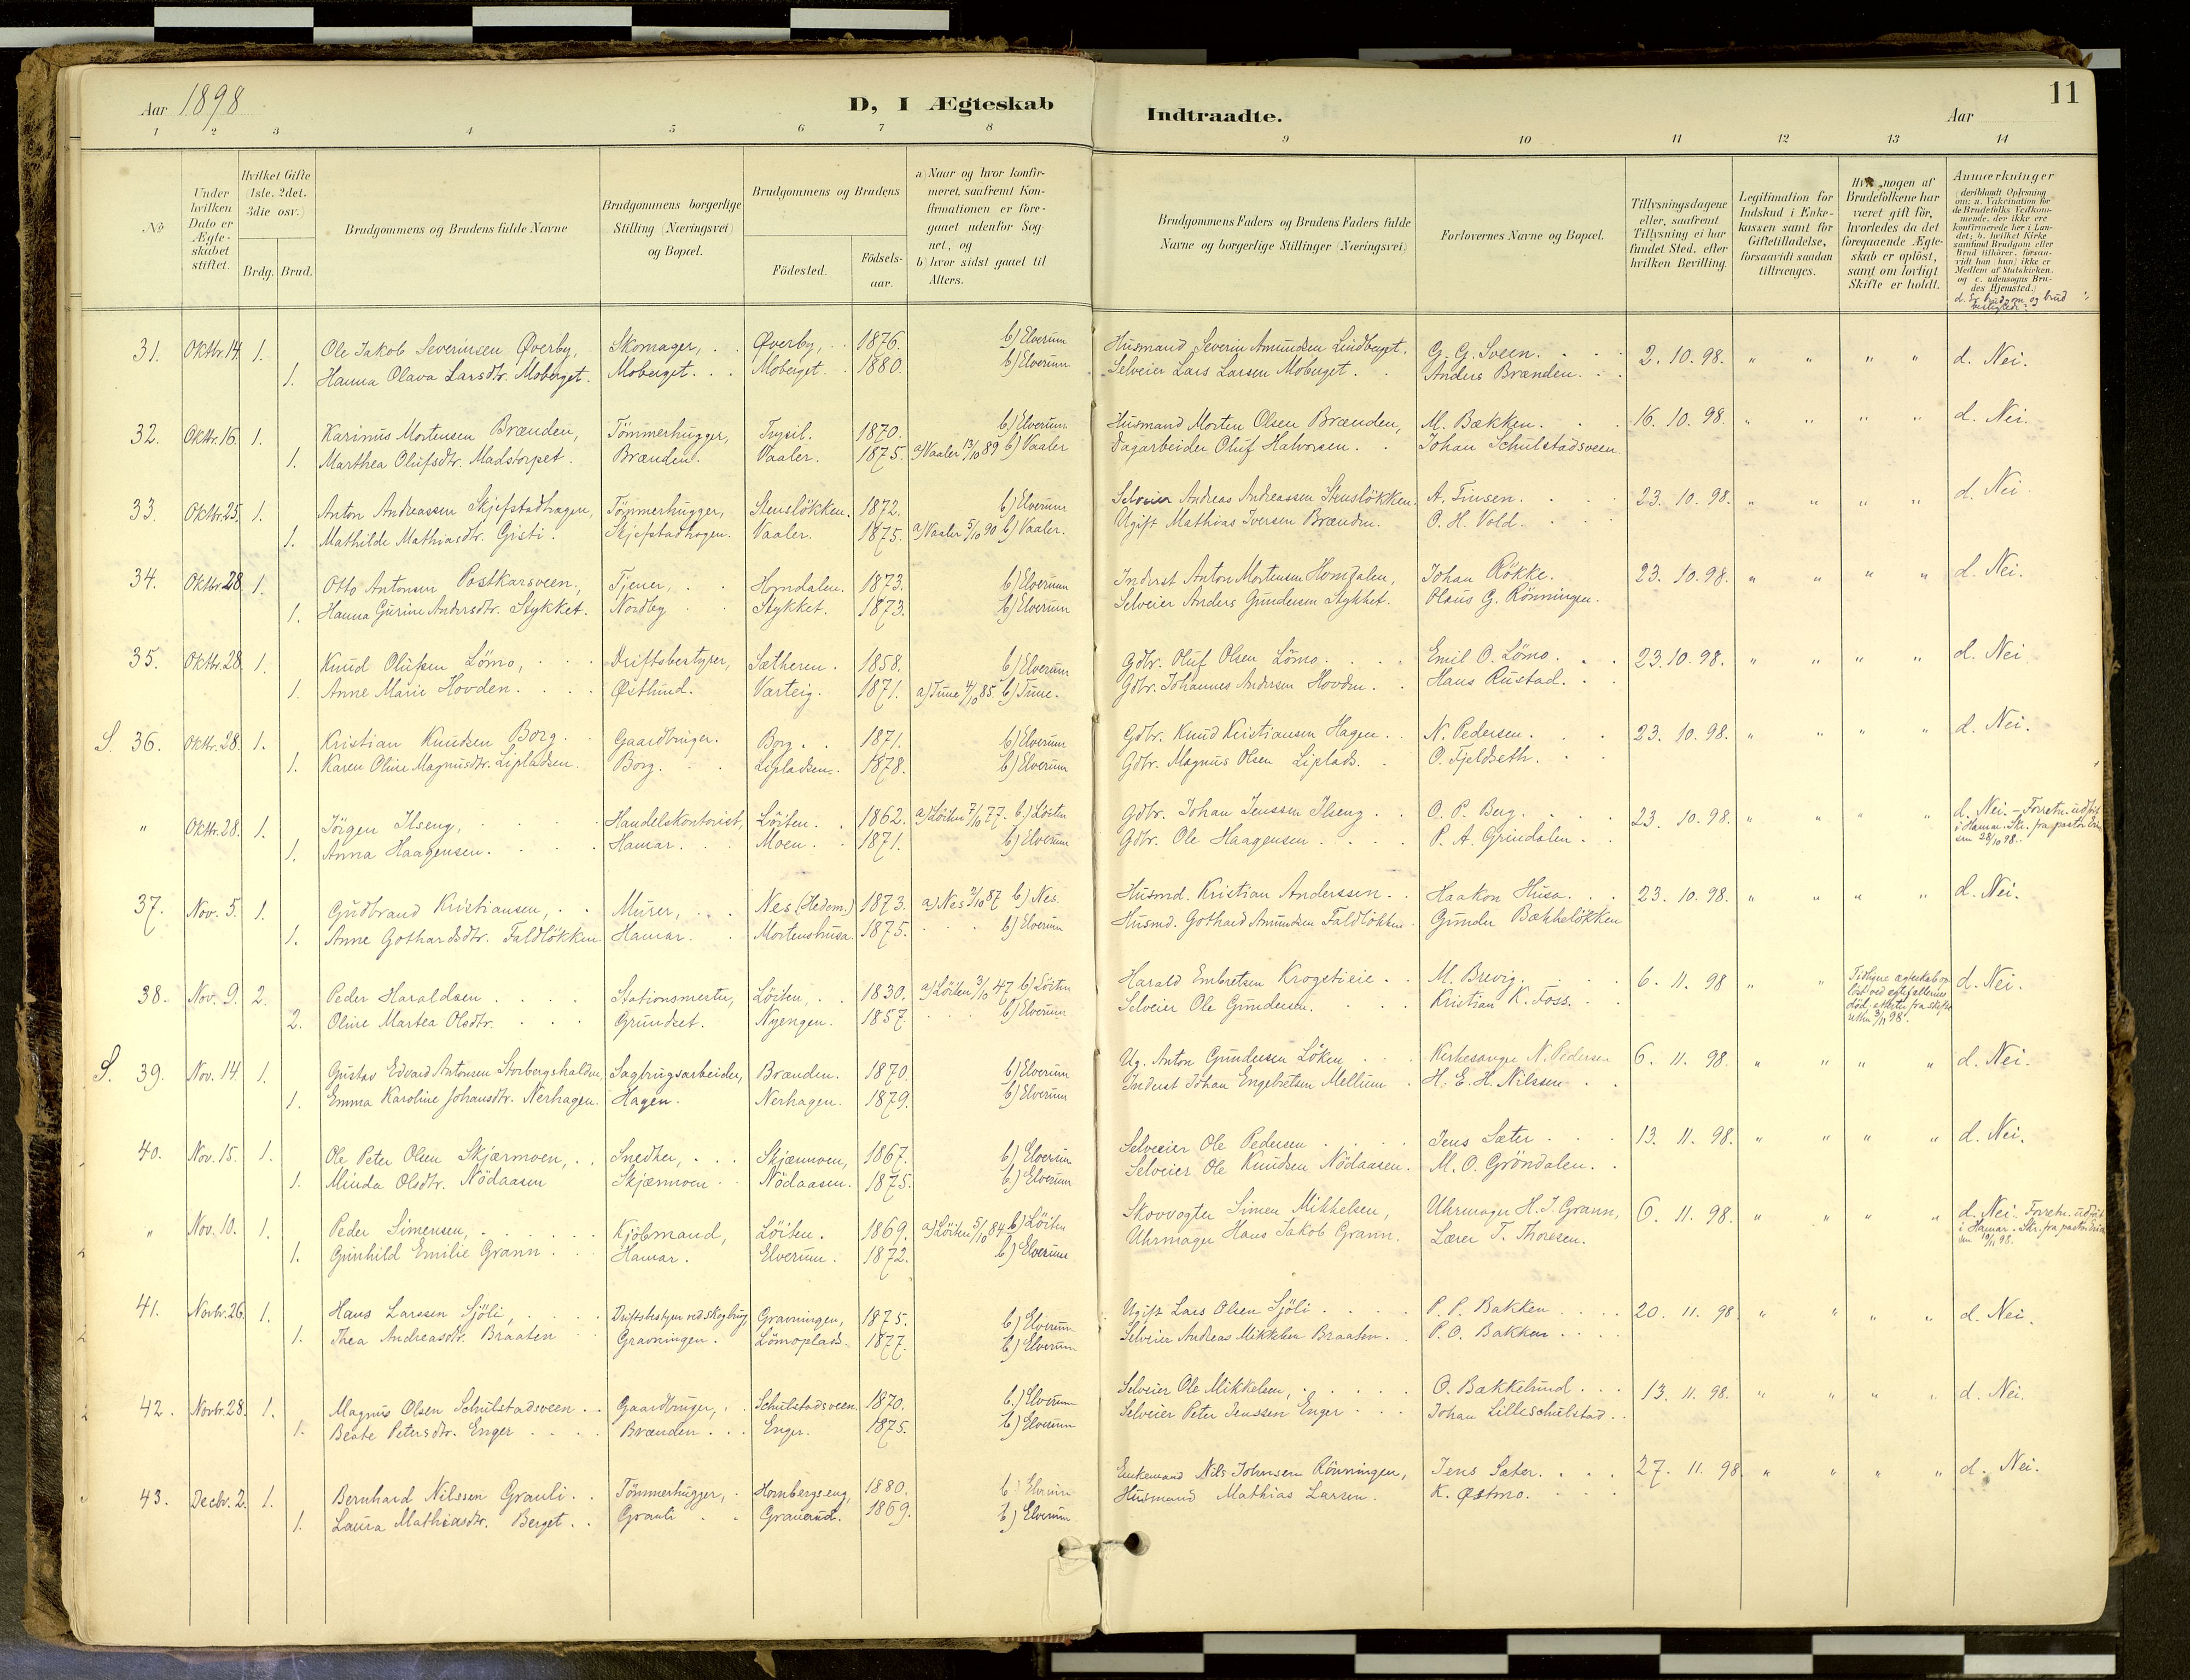 Aar 1898 D, I Ægteskab Indtraadte. Aar 11
1 2 3 4 5 6 7 8 9 10 11 12 13 14
No
Under hvilken Dato er Ægteskabet stiftet.
Hvilket Gifte (1ste, 2det, 3die osv.)
Brdg. Brud.
Brudgommens og Brudens fulde Navne
Brudgommens borgerlige Stilling (Næringsvei) og Bopæl.
Brudgommens og Brudens
Fødested. Fødselsaar.
a) Naar og hvor konfirmeret, saafremt Konfirmationen er foregaaet udenfor Sognet, og
b) hvor sidst gaaet til Alters.
Brudgommens Faders og Brudens Faders fulde Navne og borgerlige Stillinger (Næringsvei)
Forlovernes Navne og Bopæl.
Tillysningsdagene eller, saafremt Tillysning ei har fundet Sted, efter hvilken Bevilling.
Legitimation for Indskud i Enkekassen samt for Giftetilladelse, forsaavidt saadan tiltrænges.
nogen af Brudefolkene har været gift før, hvorledes da det foregaaende Ægteskab er opløst, samt om lovligt Skifte er holdt.
Anmærkninger
(deriblandt Oplysning om: a. Vakcination for de Brudefolks Vedkommende, der ikke ere konfirmerede her i Landet; b. hvilket Kirkesamfund Brudgom eller Brud tilhører, forsaavidt han (hun) ikke er Medlem af Statskirken, og c. udensogns Brudes Hjemsted.)
d. Er brudgom og brud
31. Oktbr. 14. 1. Ole Jakob Severinsen Øverby, Skomager, Øverby, 1876. b) Elverum Husmand Severin Amundsen Lindberget. G. G. Sveen. 2. 10. 98. " " " " d. Nei.
1. Hanna Olava Larsdtr. Moberget. Moberget. Moberget. 1880. b) Elverum Selveier Lars Larsen Moberget. Anders Brænden.
32. Oktbr. 16. 1. Karinus Mortensen Brænden, Tömmerhugger, Trysil. 1870. b) Elverum Husmand Morten Olsen Brænden, M. Bækken. 16. 10. 98. " " " " d. Nei.
1. Marthea Olufsdtr. Madstorpet. Brænden. Vaaler. 1875. a) Vaaler 13/10 89 b) Vaaler Dagarbeider Oluf Halvorsen. Johan Schulstadsveen.
33. Oktbr. 25. 1. Anton Andreassen Skjefstadhagen, Tömmerhugger, Stenslökken. 1872. b) Elverum Selveier Andreas Andreassen Stenslökken. A. Finsen. 23. 10. 98. " " " " d. Nei.
1. Mathilde Mathiasdtr. Gisti. Skjefstadhagen. Vaaler. 1875. a) Vaaler 5/10 90 b) Vaaler. Ugift Mathias Iversen Brænden. O. H. Vold.
34. Oktbr. 28. 1. Otto Antonsen Postkarsveen, Tjener, Horndalen. 1873. b) Elverum Inderst Anton Mortensen Horndalen, Johan Rökke. 23. 10. 98. " " " " d. Nei.
1. Hanna Gurine Andersdtr. Stykket. Nordby Stykket. 1873. b) Elverum Selveier Anders Gundersen Stykket. Olaus G. Rönningen.
35. Oktbr. 28. 1. Knud Olufsen Lömo, Driftsbestyrer, Sætheren. 1858. b) Elverum Gdbr. Oluf Olsen Lömo. Emil O. Lömo. 23. 10. 98. " " " " d. Nei
1. Anne Marie Hovden. Østlund. Varteig. 1871. a) Tune 4/10 85 b) Tune. Gdbr. Johannes Andersen Hovden. Hans Rustad.
S. 36. Oktbr. 28. 1. Kristian Knudsen Borg. Gaardbruger. Borg. 1871. b) Elverum Gdbr. Knud Kristiansen Hagen. N. Pedersen. 23. 10. 98. " " " " d. Nei.
1. Karen Oline Magnusdtr. Lipladsen. Borg. Lipladsen. 1878. b) Elverum Gdbr. Magnus Olsen Liplads. O. Fjeldseth.
" Oktbr. 28. 1. Jörgen Ilseng, Handelskontorist, Löiten. 1862. a) Löiten 7/10 77. b) Löiten Gdbr. Johan Jenssen Ilseng. O. P. Berg. 23. 10. 98. " " " " d. Nei. - Forretn. udført i Hamar. Skr. fra pastor 28/10 98.
1. Anna Haagensen. Hamar. Moen. 1871. b) Elverum Gdbr. Ole Haagensen. P. A. Grindalen.
37. Nov. 5. 1. Gudbrand Kristiansen, Murer, Nes (Hedem.) 1873. a) Nes 2/10 87 b) Nes. Husmd. Kristian Anderssen. Haakon Husa. 23. 10. 98. " " " " d. Nei.
1. Anne Gothardsdtr. Faldlökken Hamar. Mortenshusa. 1875. b) Elverum Husmd. Gothard Amundsen Faldlökken. Gunder Bækkelökken
38. Nov. 9. 2. Peder Haraldsen Stationsmester, Löiten, 1830. a) Löiten 3/10 47 b) Löiten Harald Embretsen Krogstieie. M. Brevig. 6. 11. 98 " " Tidligere ægteskab opløst ved ægtefællernes död. Attester fra skifteretten 3/11 98. d. Nei.
2. Oline Martea Olsdtr. Grundset. Nyengen. 1857. b) Elverum Selveier Ole Gundersen. Kristian K. Foss.
S. 39. Nov. 14. 1. Gustav Edvard Antonsen Storbergshalden, Sagbrugsarbeider, Brænden. 1870. b) Elverum Ug. Anton Gundersen Löken Kirkesanger N. Pedersen 6. 11. 98. " " " " d. Nei.
1. Emma Karoline Johansdtr. Nerhagen. Hagen. Nerhagen. 1879. b) Elverum Inderst Johan Engebretsen Mellum. H. E. H. Nilssen
40. Nov. 15. 1. Ole Peter Olsen Skjærmoen, Snedker, Skjærmoen, 1867. b) Elverum Selveier Ole Pedersen Jens Sæter 13. 11. 98. " " " " d. Nei.
1. Minda Olsdtr. Nödaasen Skjærmoen Nödaasen. 1875. b) Elverum Selveier Ole Knudsen Nödaasen. M. O. Gröndalen.
" Nov. 10. 1. Peder Simensen, Kjöbmand, Löiten. 1869. a) Löiten 5/10 84 b) Löiten Skovvogter Simen Mikkelsen, Uhrmager H. J. Grann, 6. 11. 98. " " " " d. Nei. Forretn. udført i Hamar. Skr. fra pastor 10/11 98.
1. Gunhild Emilie Grann Hamar. Elverum. 1872. b) Elverum Uhrmager Hans Jakob Grann. Lærer T. Thoresen.
41. Novbr. 26. 1. Hans Larssen Sjöli, Driftsbestyrer ved Skogbrug Gravningen, 1875. b) Elverum Ugift Lars Olsen Sjöli P. P. Bakken 20. 11. 98 " " " " d. Nei.
1. Thea Andreasdtr. Braaten Gravningen. Lömoplads. 1877. b) Elverum Selveier Andreas Mikkelsen Braaten. P. O. Bakken
42. Novbr. 28. 1. Magnus Olsen Schulstadsveen Gaardbruger, Schulstadsveen. 1870. b) Elverum Selveier Ole Mikkelsen, O. Bækkelund 13. 11. 98. " " " " d. Nei.
1. Beate Petersdtr. Enger Brænden. Enger. 1875. b) Elverum Selveier Peter Jenssen Enger Johan Lilleschulstad.
43. Decbr. 2. 1. Bernhard Nilssen Granli. Tömmerhugger, Hornbergseng, 1880. b) Elverum Enkemand Nils Johnsen Rönningen, Jens Sæter. 27. 11. 98. " " " " d. Nei.
1. Laura Mathiasdtr. Berget. Granli Granerud. 1869. b) Elverum Husmand Mathias Larsen. K. Østmo.